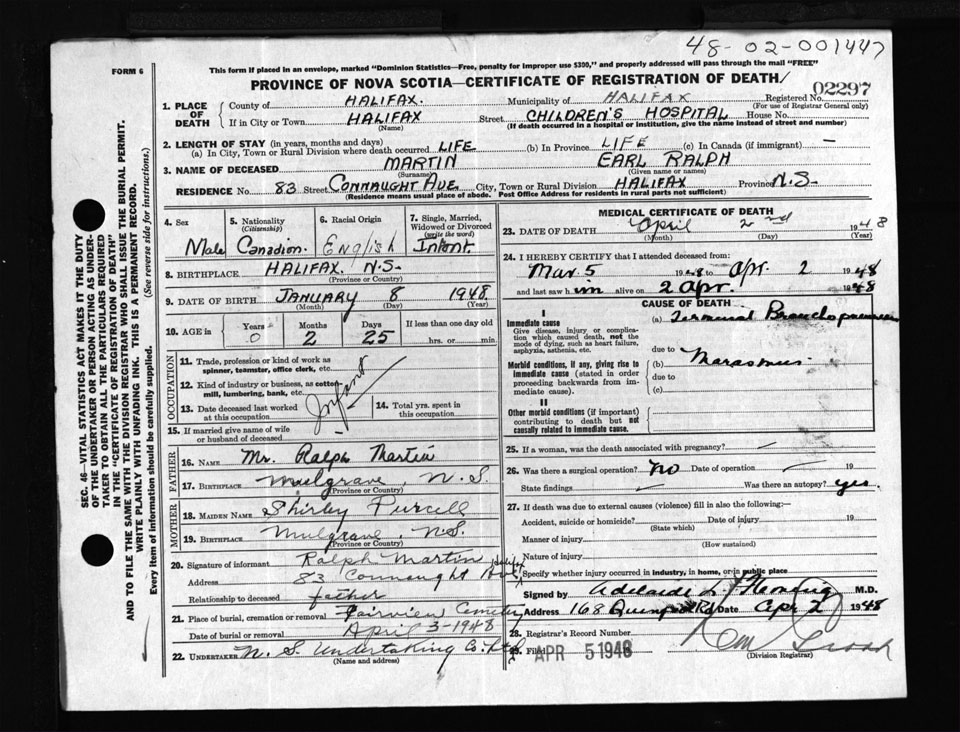 48-02-001447
FORM 6
This form if placed in an envelope, marked "Dominion Statistics—Free, penalty for improper use $300," and properly addressed will pass through the mail "FREE"
PROVINCE OF NOVA SCOTIA—CERTIFICATE OF REGISTRATION OF DEATH
02297
1. PLACE OF DEATH
County of HALIFAX. Municipality of HALIFAX Registered No.
(For use of Registrar General only)
If in City or Town HALIFAX Street CHILDREN'S HOSPITAL House No.
(Name) (If death occurred in a hospital or institution, give the name instead of street and number)
2. LENGTH OF STAY (in years, months and days)
(a) In City, Town or Rural Division where death occurred LIFE (b) In Province LIFE (c) In Canada (if immigrant) —
3. NAME OF DECEASED MARTIN EARL RALPH
(Surname) (Given name or names)
RESIDENCE No. 83 Street CONNAUGHT AVE. City, Town or Rural Division HALIFAX Province N.S.
(Residence means usual place of abode. Post Office Address for residents in rural parts not sufficient)
4. Sex Male
5. Nationality (Citizenship) Canadian.
6. Racial Origin English
7. Single, Married, Widowed or Divorced (write the word) Infant.
8. BIRTHPLACE HALIFAX. N.S.
(Province or Country)
9. DATE OF BIRTH JANUARY 8 1948
(Month) (Day) (Year)
10. AGE in Years 0 Months 2 Days 25 If less than one day old
hrs. or min.
OCCUPATION
11. Trade, profession or kind of work as spinner, teamster, office clerk, etc.
12. Kind of industry or business, as cotton mill, lumbering, bank, etc.
Infant
13. Date deceased last worked at this occupation
14. Total yrs. spent in this occupation
15. If married give name of wife or husband of deceased
FATHER
16. NAME Mr. Ralph Martin
17. BIRTHPLACE Mulgrave, N.S.
(Province or Country)
MOTHER
18. MAIDEN NAME Shirley Purcell
19. BIRTHPLACE Mulgrave, N.S.
(Province or Country)
20. Signature of informant Ralph Martin
Address 83 Connaught Ave. Halifax
Relationship to deceased father
21. Place of burial, cremation or removal Fairview Cemetery
Date of burial or removal April 3-1948
22. UNDERTAKER N.S. Undertaking Co. Ltd.
(Name and address)
MEDICAL CERTIFICATE OF DEATH
23. DATE OF DEATH April 2nd 1948
(Month) (Day) (Year)
24. I HEREBY CERTIFY that I attended deceased from:
Mar. 5 1948 to Apr. 2 1948
and last saw him alive on 2 Apr. 1948
CAUSE OF DEATH
I
Immediate cause
Give disease, injury or complication which caused death, not the mode of dying, such as heart failure, asphyxia, asthenia, etc.
(a) Terminal Bronchopneumonia
due to
Morbid conditions, if any, giving rise to immediate cause (stated in order proceeding backwards from immediate cause).
(b) Marasmus.
due to
(c)
II
Other morbid conditions (if important) contributing to death but not causally related to immediate cause.
25. If a woman, was the death associated with pregnancy? —
26. Was there a surgical operation? no Date of operation — 19
State findings Was there an autopsy? yes.
27. If death was due to external causes (violence) fill in also the following:
Accident, suicide or homicide? Date of injury 19
(State which)
Manner of injury
(How sustained)
Nature of injury
Specify whether injury occurred in industry, in home, or in public place
Signed by Adelaide L. Fleming M.D.
Address 168 Rd Date Apr 2 1948
28. Registrar's Record Number
29. Filed APR 5 1948
(Division Registrar)
SEC. 46—VITAL STATISTICS ACT MAKES IT THE DUTY
OF THE UNDERTAKER OR PERSON ACTING AS UNDER-
TAKER TO OBTAIN ALL THE PARTICULARS REQUIRED
IN THE "CERTIFICATE OF REGISTRATION OF DEATH"
AND TO FILE THE SAME WITH THE DIVISION REGISTRAR WHO SHALL ISSUE THE BURIAL PERMIT.
WRITE PLAINLY WITH UNFADING INK. THIS IS A PERMANENT RECORD.
Every item of information should be carefully supplied. (See reverse side for instructions.)